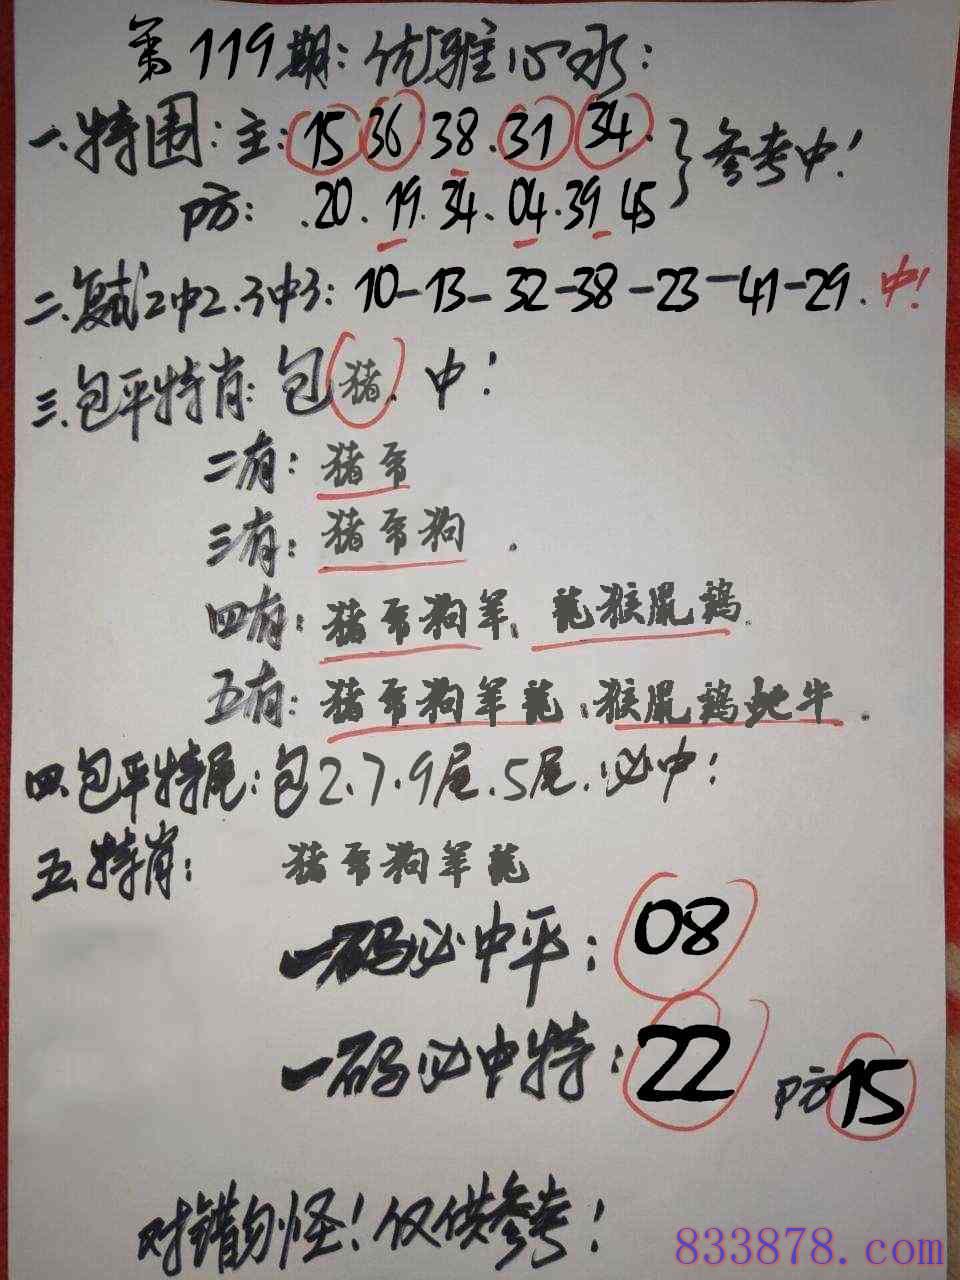 第119期：优雅心水：
一.特围：主：15 36.38.31.34.
防：.20.19.34.04.39 45
参考中！
二.复式2中2.3中3：10-13-32-38-23-41-29.中！
三.包平特肖：包猪.中！
二有：猪帝
三有：猪帝狗.
四有：猪帝狗羊、龍猴鼠鷄
五有：猪帝狗羊龍、猴鼠鷄蛇牛.
四.包平特尾：包2.7.9尾.5尾.必中！
五.特肖：猪帝狗羊龍
一码必中平：08
一码必中特：22 防15
对错勿怪！仅供参考！
833878.com